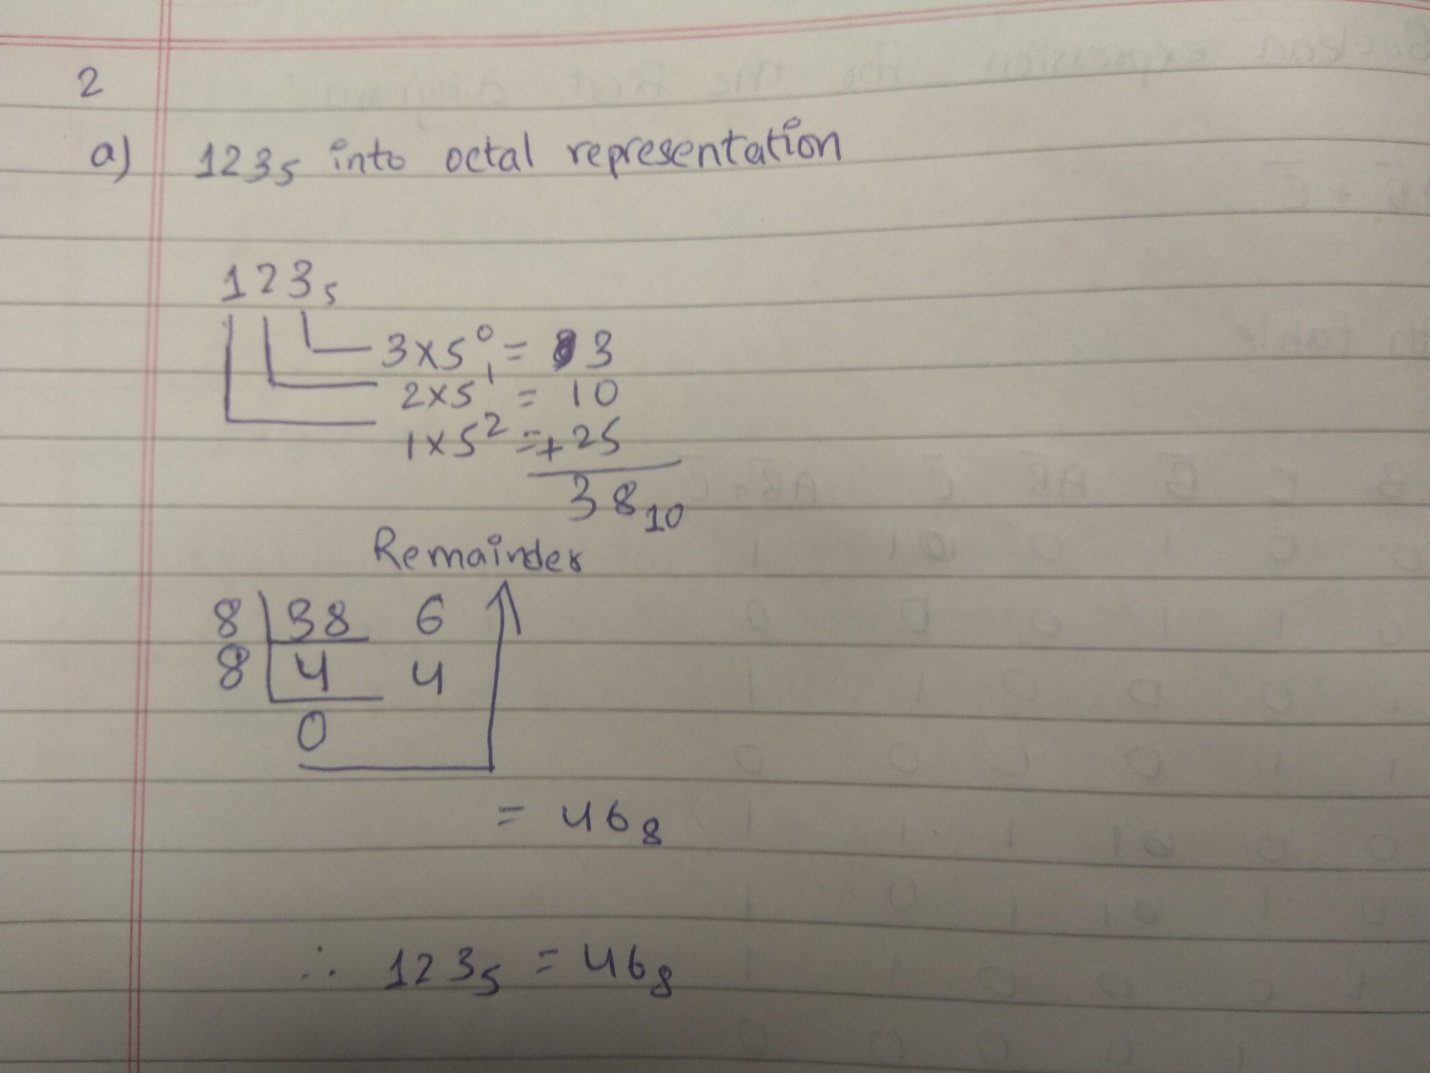 2
a) 123₅ into octal representation
123₅
3×5⁰ = 3
2×5¹ = 10
1×5² = +25
38₁₀
Remainder
8 38 6
8 4 4
0
= 46₈
∴ 123₅ = 46₈